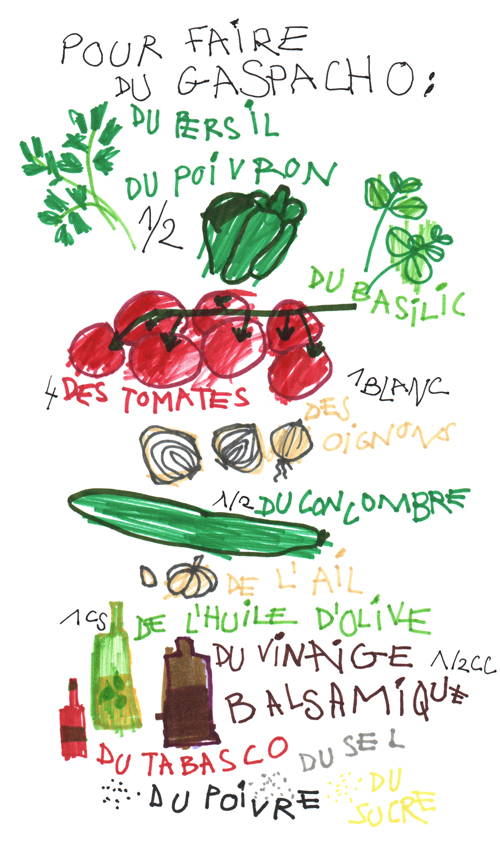 POUR FAIRE
DU GASPACHO :
DU PERSIL
DU POIVRON
1/2
DU BASILIC
4 DES TOMATES
1 BLANC
DES
OIGNONS
1/2 DU CONCOMBRE
DE L'AIL
1 CS DE L'HUILE D'OLIVE
DU VINAIGE 1/2 CC
BALSAMIQUE
DU TABASCO
DU SEL
DU POIVRE
DU
SUCRE